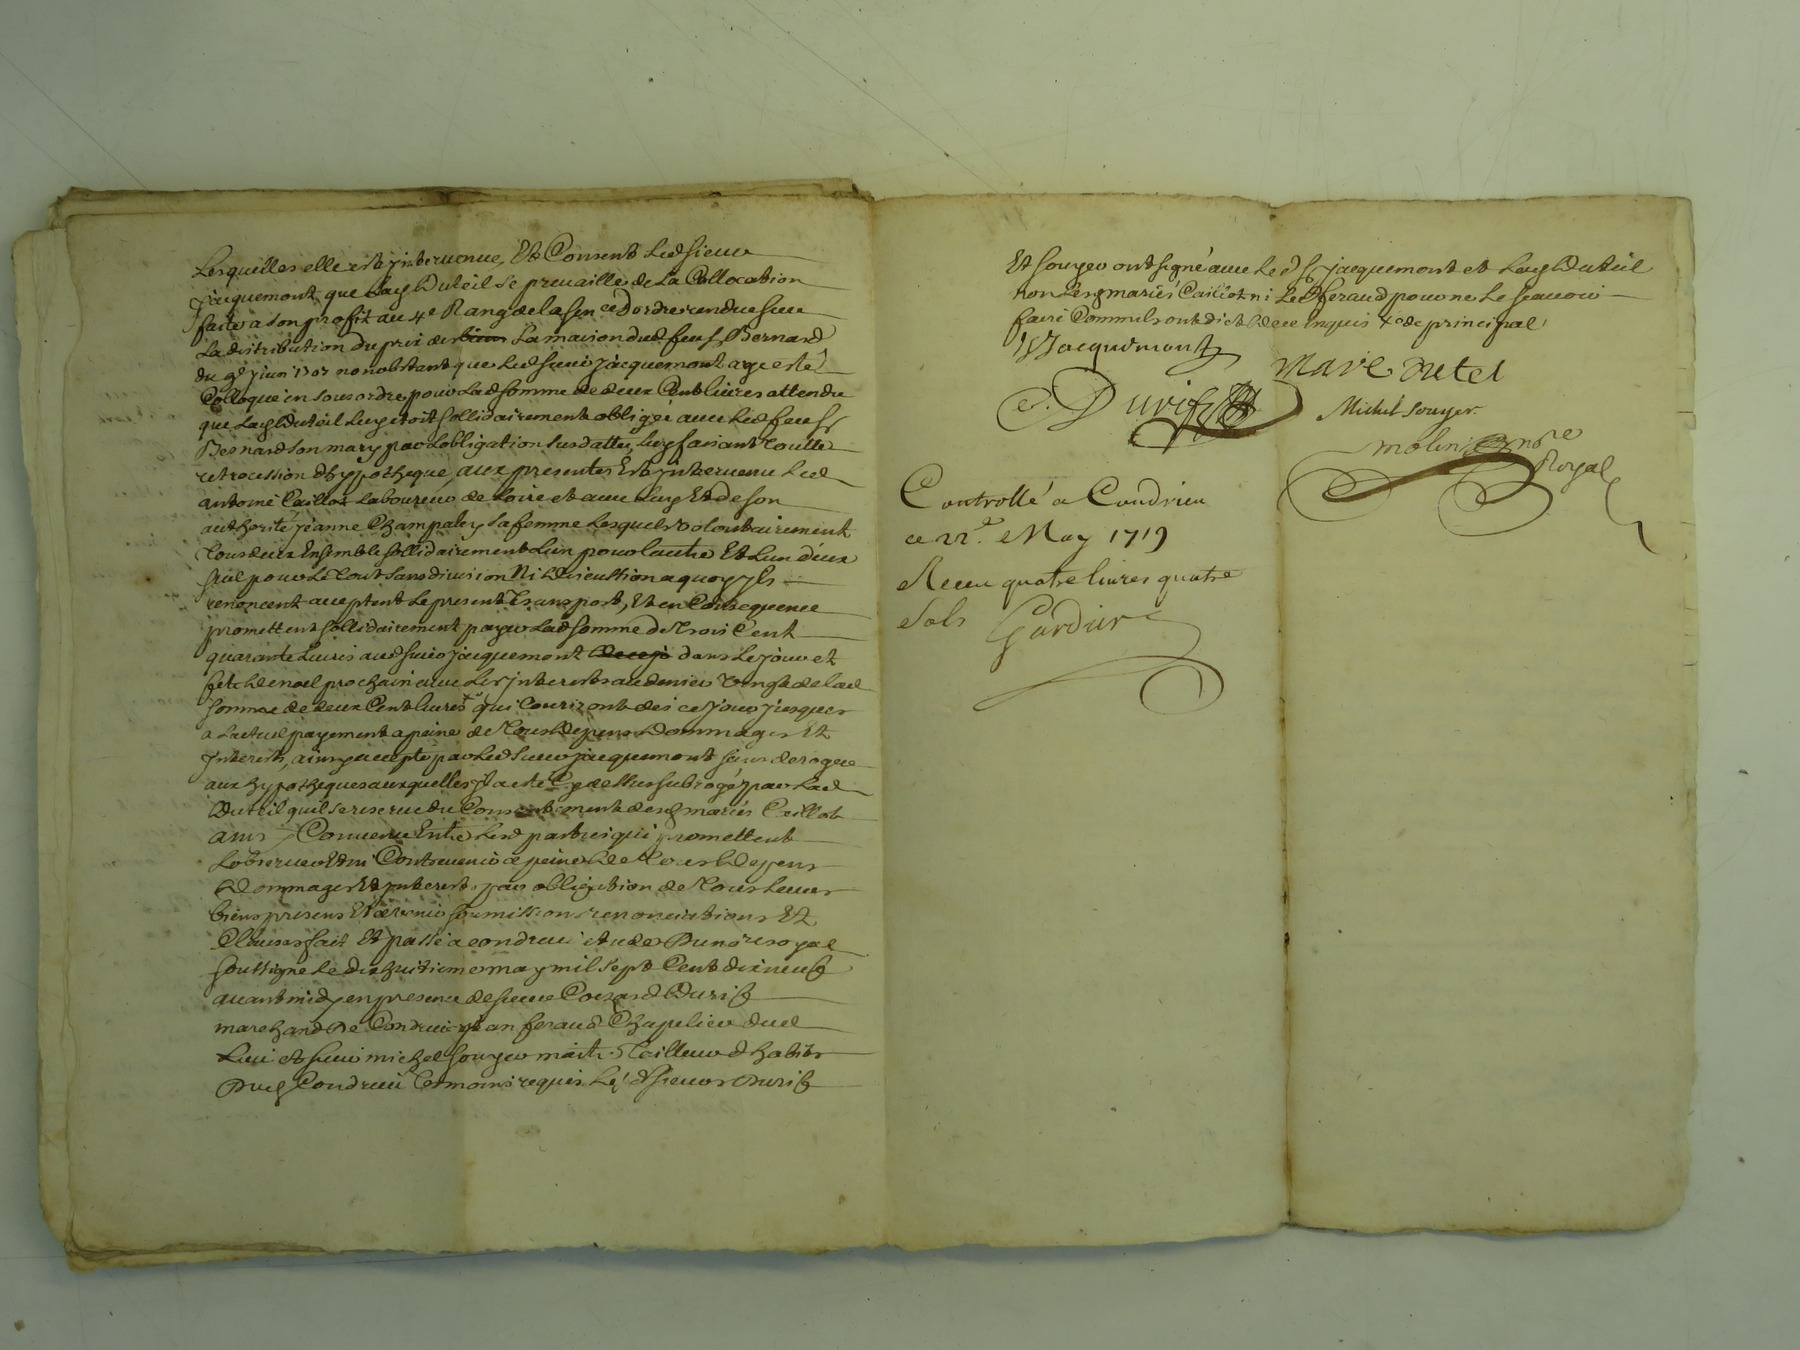 Lesquelles elle est intervenue, Et Consent Led sieur
Jacquemont que Lad Duteil se prevaille de La Collocation
faite a son profit au 4e Rang de la sence Dordre rendue sur
La distribution du prix des biens La maison dud feu sr Bernard
du juin 1707 nonobstant que Led sieur jacquemont aye esté
Colloqué en sous ordre pour Lad somme de deux Cent livres attendu
que Lad Duteil Luy etoit sollidairement obligée avec Led feu sr
Bernard son mary par Lobligation susdattée, luy faisant Toutte
retrocession dhypotheque, aux presentes Est intervenu Led
antoine Caillot Laboureur de Loire et avec Luy Et de son
authorite jeanne Champaley sa femme Lesquels volontairement
Tous deux Ensemble sollidairement Lun pour lautre Et Lun deux
seul pour Le Tout sans division Ni discution a quoy yls
renoncent acceptent Le present Transport, Et en Consequence
promettent sollidairement payer Lad somme de Trois Cent
quarante Livres aud sieur jacquemont dans Le jour et
fete de noel prochain avec Les interests au denier vingt de lad
somme de deux Cent livres qui Courront des ce jour jusques
a Lactuel payement a peine de Tous depens dommages Et
Interests, ainsy accepté par Led sieur jacquemont sans deroger
aux hypotheques auxquelles yl a eté Cy dessus subrogé par Lad
Duteil quil se reserve du Consentement desd mariés Caillot
ains Convenu Entre Lesd parties qui promettent
Lobserver Et ni Contrevenir a peine de Tous depens
dommages Et interests, par obligation de Tous Leurs
biens presens Et avenir soumissions renonciations Et
Clauses fait Et passé a condrieu etude Du nore royal
soussigne Le dix huitieme may mil sept Cent dix neuf
avant midy en presence de sieur Duris
marchand De Condrieu jean feraud Chapelier dud
Lieu et sieur michel souyer maitre Tailleur dhabits
Dud Condrieu Temoins requis Les d sieurs Duris
Et souyer ont signé avec Le d sr jacquemont et Lad Duteil
non Lesd mariés Caillot ni Led feraud pour ne Le scavoir
faire Comm ils ont dit de ce enquis de principal
Jacquemont
Marc Dutel
Duris
Michel souyer
molin nore
Royal
Controllé a Condrieu
ce 22e. May 1719
Receu quatre livres quatre
sols Gardier